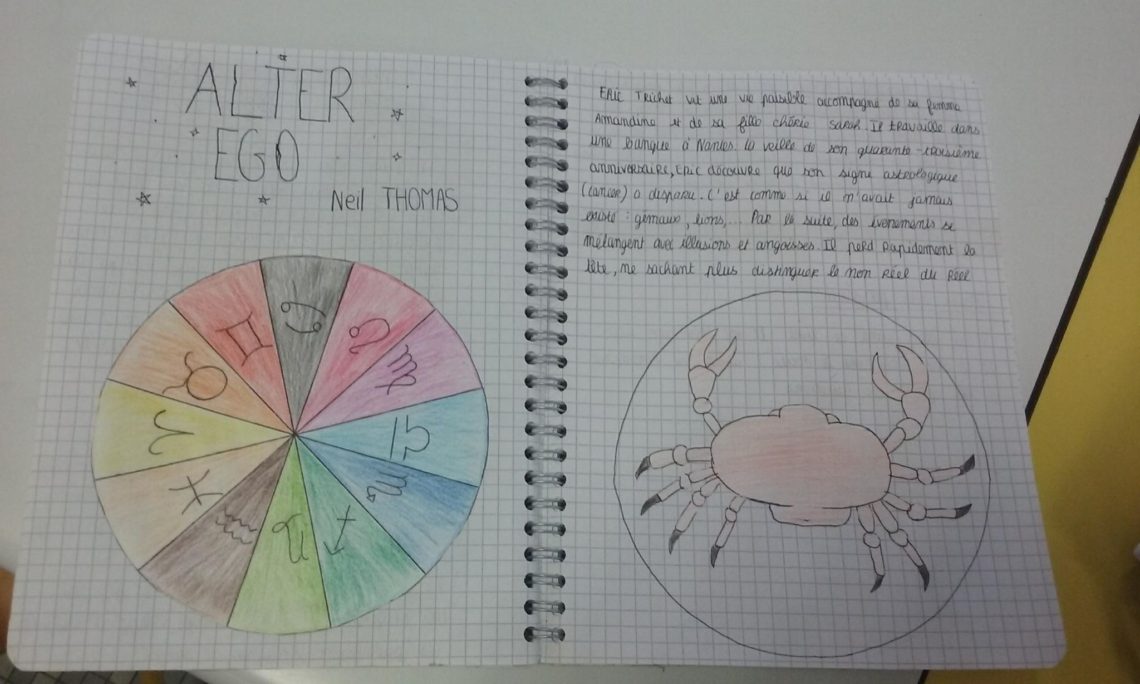 ALTER
EGO
Neil THOMAS
Eric Trichet vit une vie paisible accompagné de sa femme
Amandine et de sa fille chérie Sarah. Il travaille dans
une banque à Nantes. La veille de son quarante-troisième
anniversaire, Eric découvre que son signe astrologique
(cancer) a disparu. C'est comme si il n'avait jamais
existé : gémeaux, lions,... Par la suite, des évenements se
mélangent avec illusions et angoisses. Il perd rapidement la
tête, ne sachant plus distinguer le non réel du réel